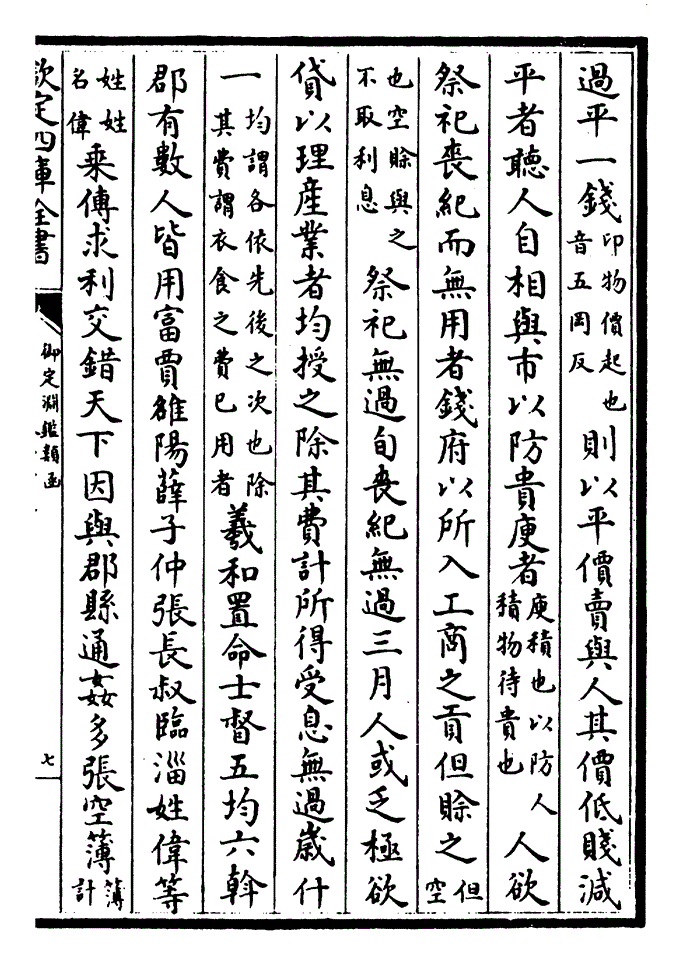 過平一錢印物價起也音五岡反則以平價賣與人其價低賤減
平者聽人自相與市以防貴庾者庾積也以防人積物待貴也人欲
祭祀喪紀而無用者錢府以所入工商之貢但賒之但空
也空賒與之不取利息祭祀無過旬喪紀無過三月人或乏極欲
貸以理産業者均授之除其費計所得受息無過歲什
一均謂各依先後之次也除其費謂衣食之費已用者羲和置命士督五均六斡
郡有數人皆用富賈雒陽薛子仲張長叔臨淄姓偉等
姓姓名偉乗傳求利交錯天下因與郡縣通姦多張空簿簿計
欽定四庫全書
御定淵鑑類函
七